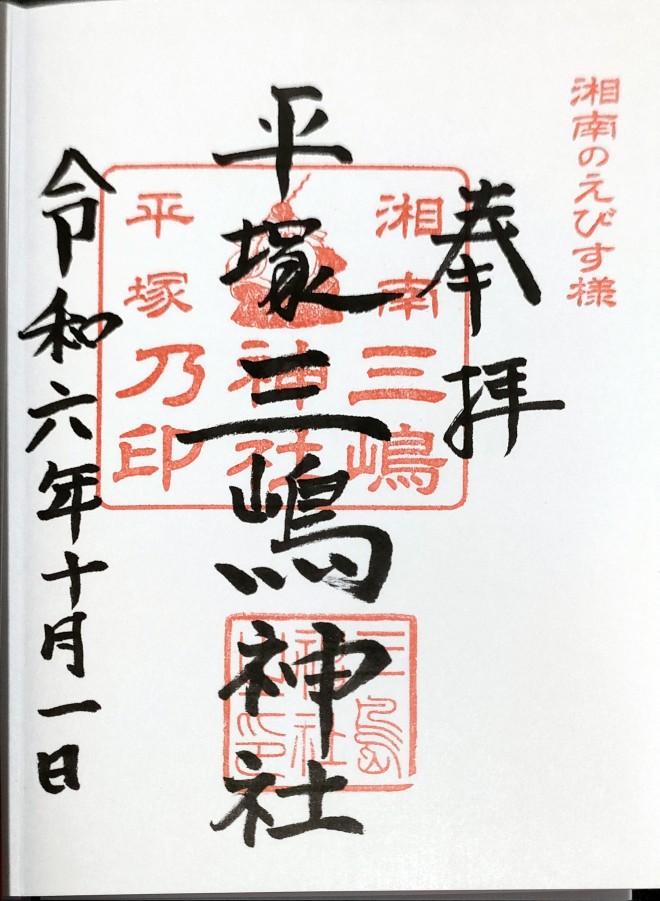 湘南のえびす様
奉拝
平塚三嶋神社
令和六年十月一日
湘南三嶋
神社
平塚乃印
三島
神社
之印